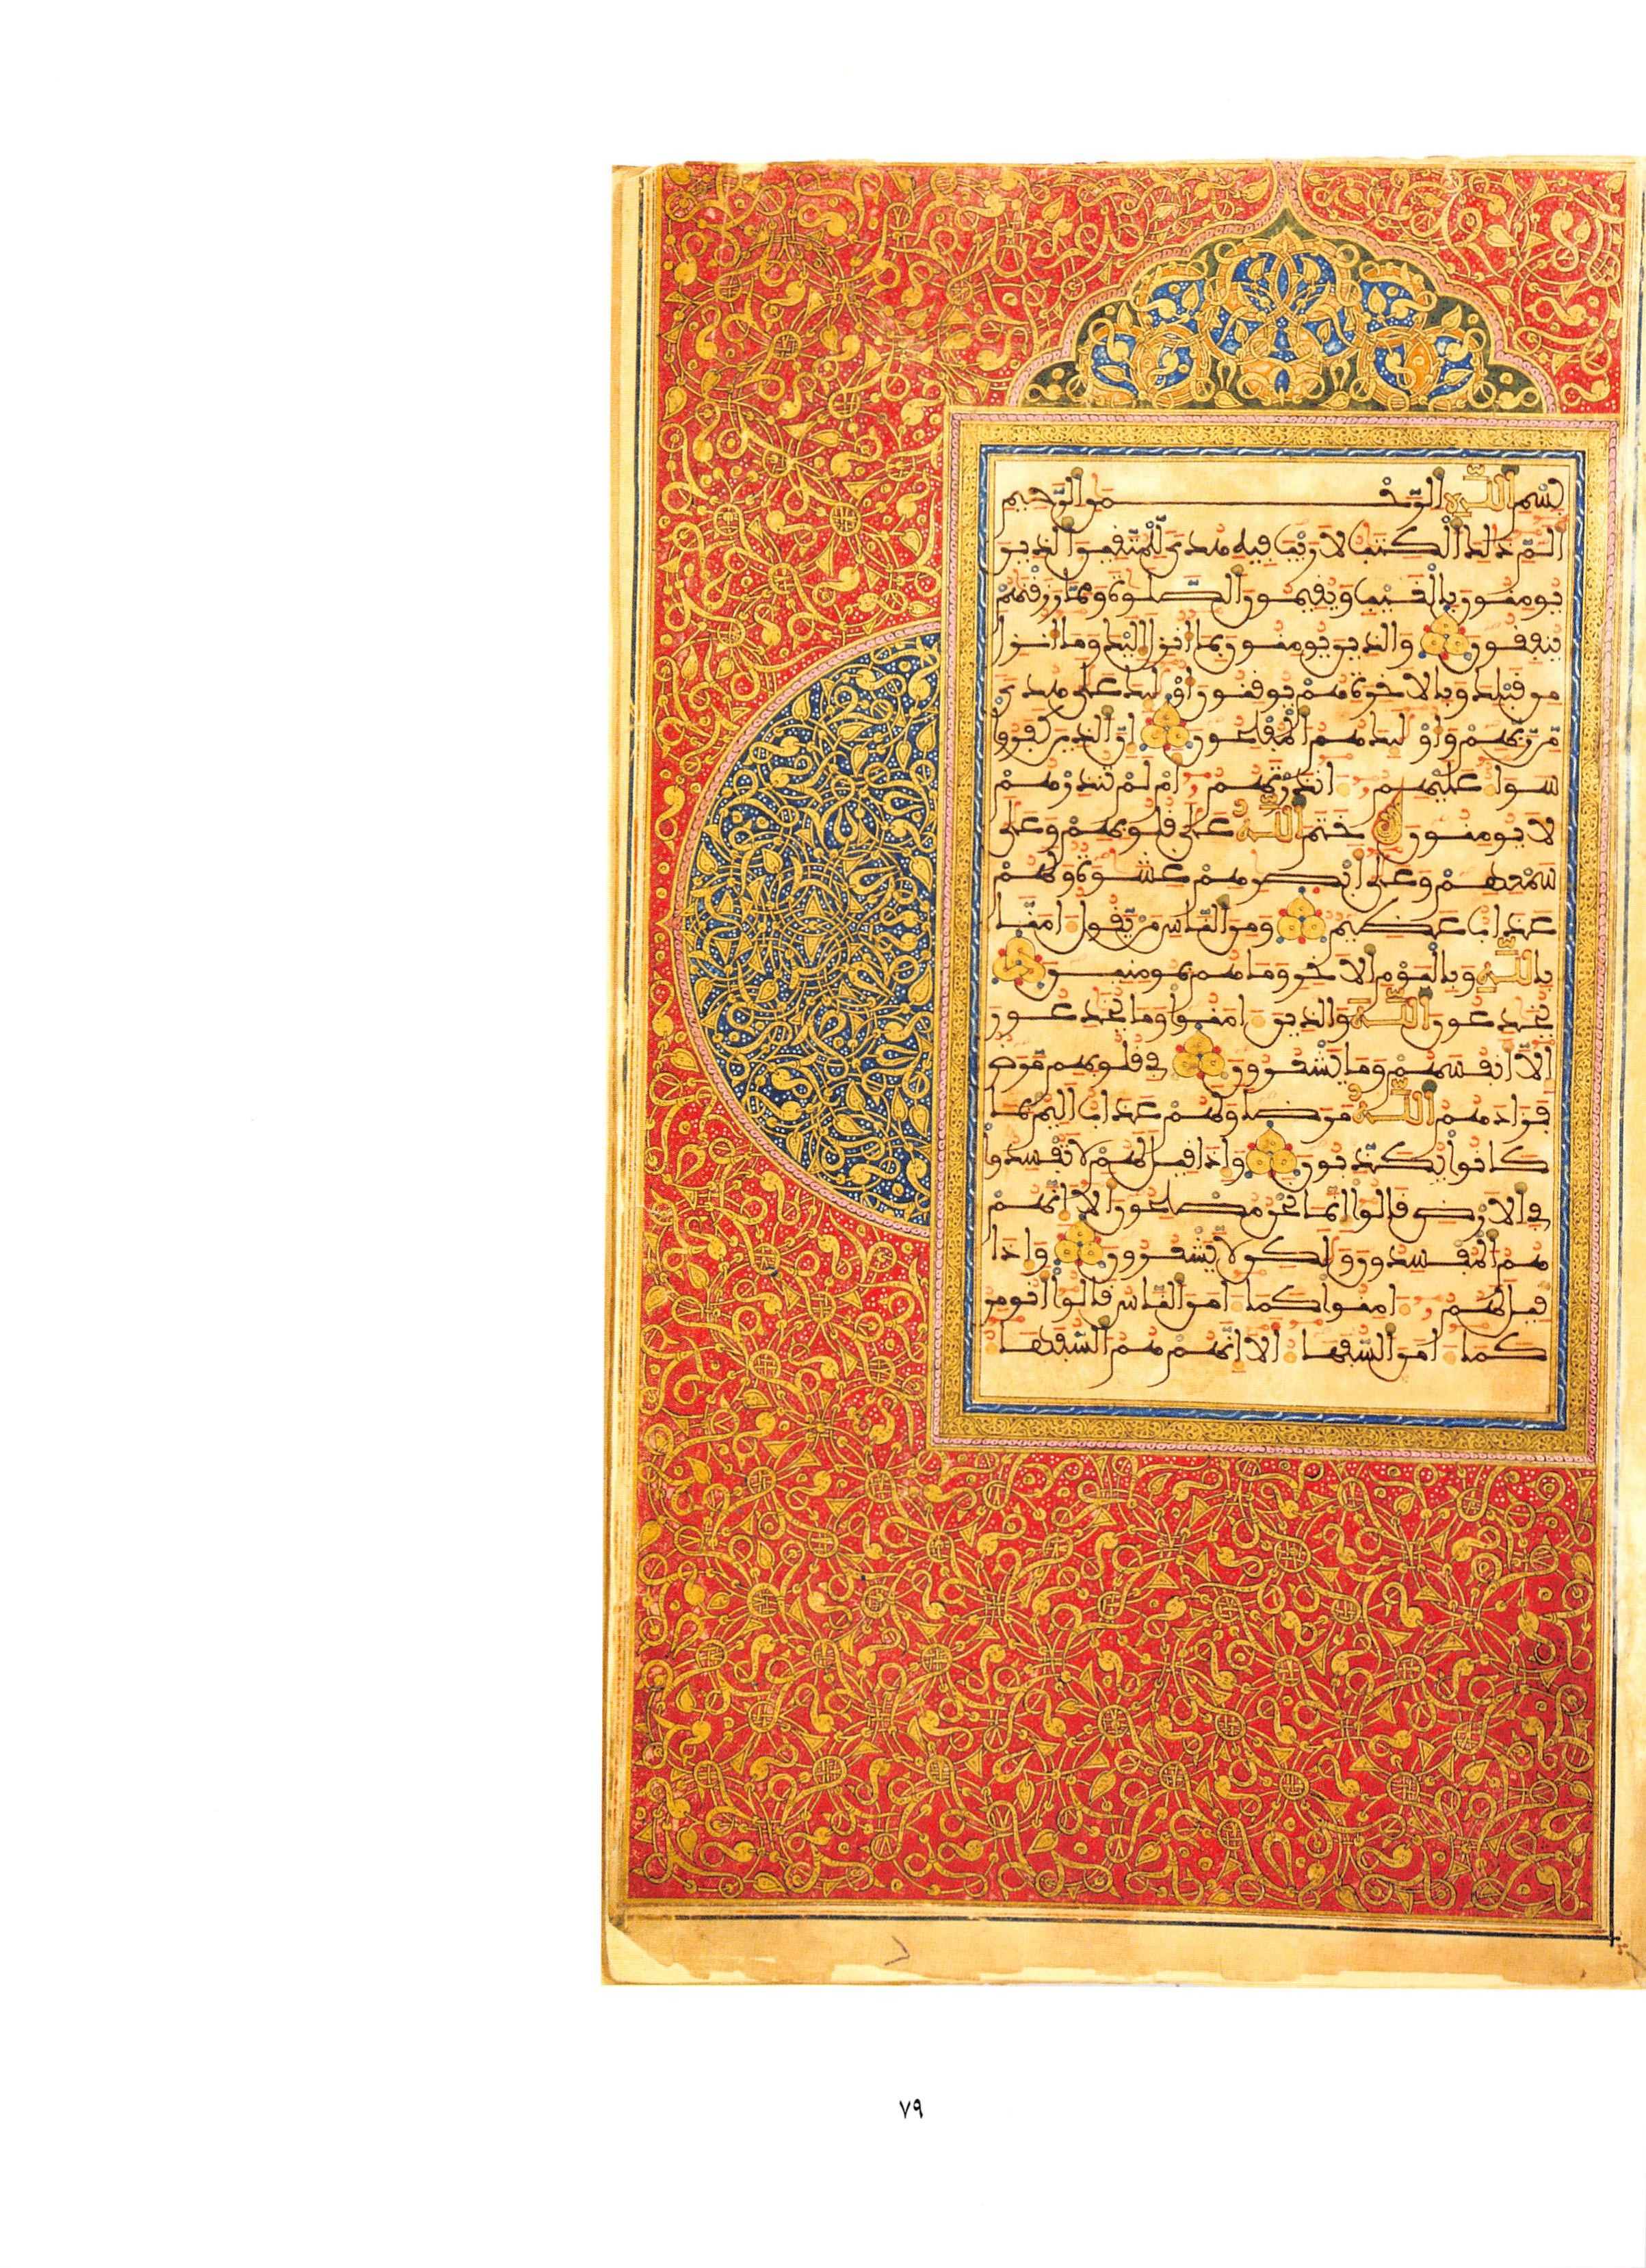 بسم الله الرحمن الرحيم
الم ذلك الكتب لا ريب فيه هدى للمتقين الذين
يومنون بالغيب ويقيمون الصلوة ومما رزقنهم
ينفقون والذين يومنون بما انزل اليك وما انزل
من قبلك وبالاخرة هم يوقنون اولئك على هدى
من ربهم واولئك هم المفلحون ان الذين كفروا
سواء عليهم ءانذرتهم ام لم تنذرهم
لا يومنون ختم الله على قلوبهم وعلى
سمعهم وعلى ابصرهم غشوة ولهم
عذاب عظيم ومن الناس من يقول امنا
بالله وباليوم الاخر وما هم بمومنين
يخدعون الله والذين امنوا وما يخدعون
الا انفسهم وما يشعرون في قلوبهم مرض
فزادهم الله مرضا ولهم عذاب اليم بما
كانوا يكذبون واذا قيل لهم لا تفسدوا
في الارض قالوا انما نحن مصلحون الا انهم
هم المفسدون ولكن لا يشعرون واذا
قيل لهم امنوا كما امن الناس قالوا انومن
كما امن السفهاء الا انهم هم السفهاء
٧٩